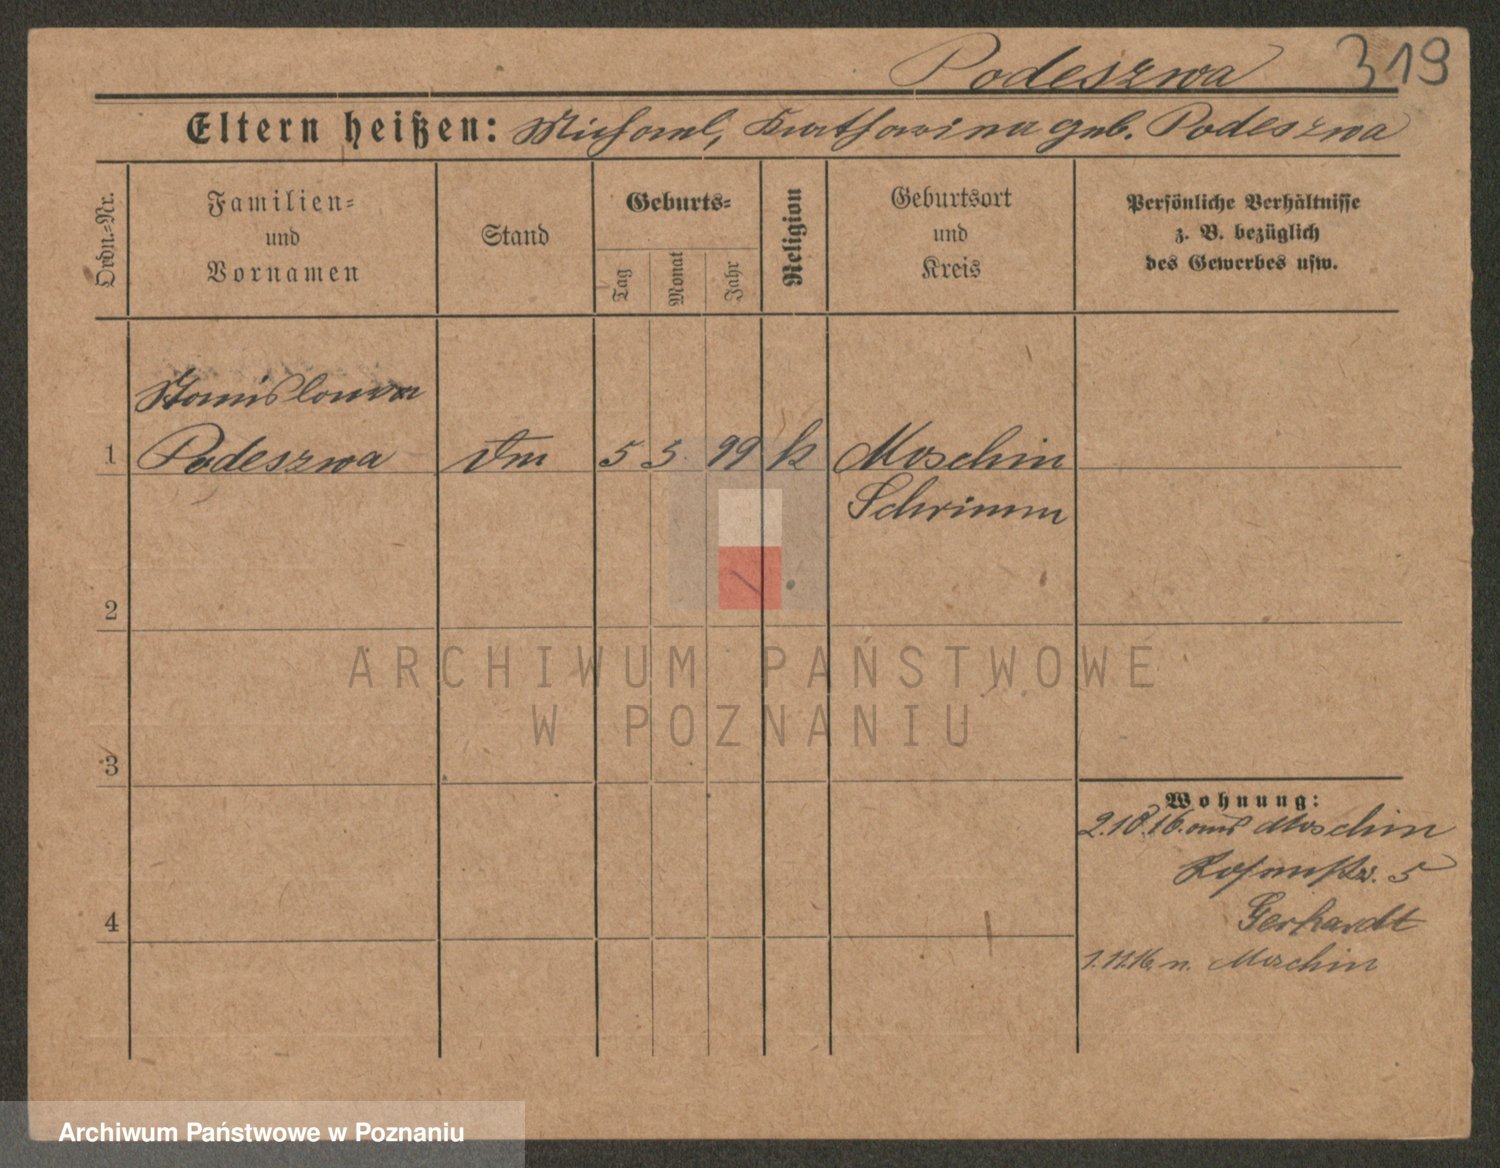 Podeszwa 319
Eltern heißen: Michael, Katharina geb. Podeszwa
Ordn.-Nr.
Familien-
und
Vornamen
Stand
Geburts-
Tag
Monat
Jahr
Religion
Geburtsort
und
Kreis
Persönliche Verhältnisse
z. B. bezüglich
des Gewerbes usw.
Stanislawa
1 Podeszwa 5 5 99 k Moschin
Schrimm
2
3
4
Wohnung:
2.10.16. aus Moschin
5
Gerhardt
1.11.16 n. Moschin
ARCHIWUM PAŃSTWOWE
W POZNANIU
Archiwum Państwowe w Poznaniu